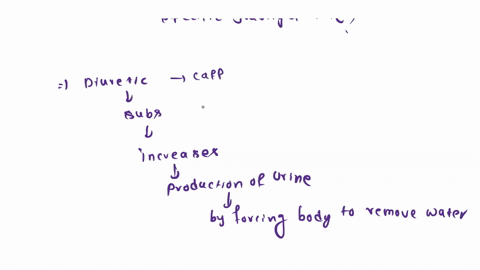 =) Diuretic → capp
↓
subs
↓
increases
↓
production of urine
↓
by forcing body to remove water